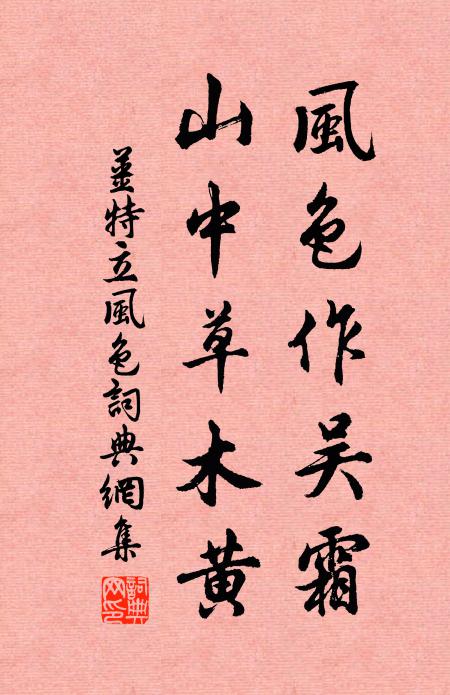 風色作吴霜
山中草木黄
薑特立風色詞典網集
詞典网印